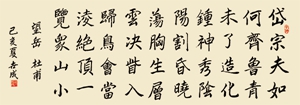 岱宗夫如
何齊魯青
未了造化
鍾神秀陰
陽割昏曉
蕩胸生層
雲決眥入
歸鳥會當
淩絕頂一
覽衆山小
望岳 杜甫
己亥夏